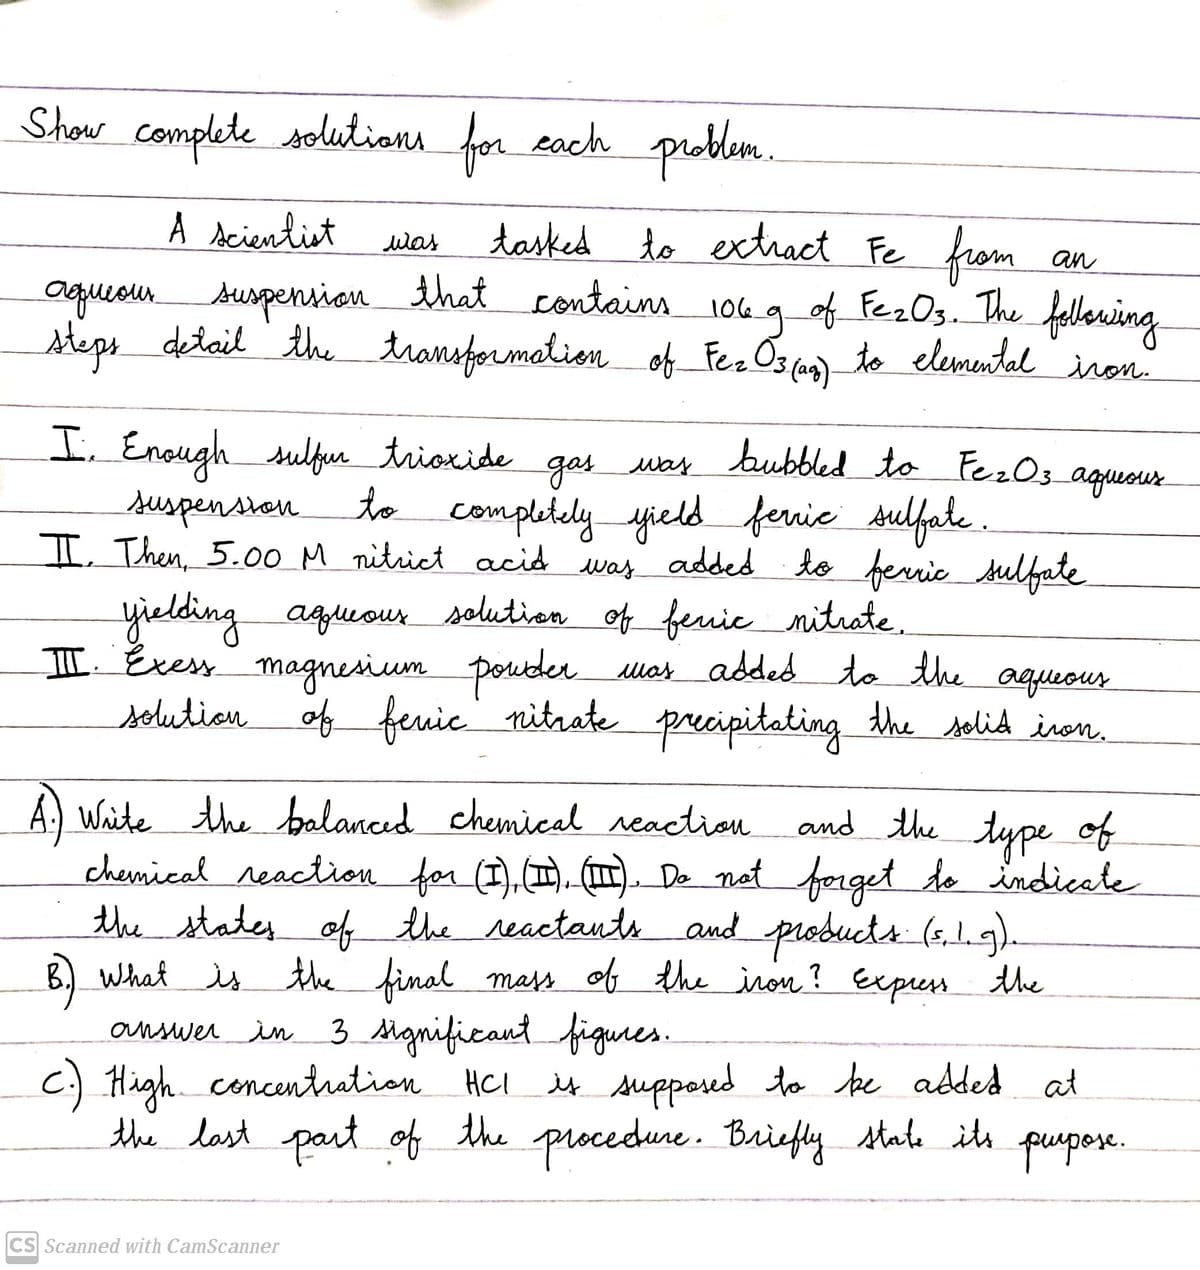 Show complete solutions for each problem.
A scientist was tasked to extract Fe from an
aqueous suspension that contains 106 g of Fe2O3. The following
steps detail the transformation of Fe2O3(aq) to elemental iron.
I. Enough sulfur trioxide gas was bubbled to Fe2O3 aqueous
suspension to completely yield ferric sulfate.
II. Then, 5.00 M nitrict acid was added to ferric sulfate
yielding aqueous solution of ferric nitrate.
III. Exess magnesium powder was added to the aqueous
solution of ferric nitrate precipitating the solid iron.
A.) Write the balanced chemical reaction and the type of
chemical reaction for (I), (II), (III). Do not forget to indicate
the states of the reactants and products (s, l, g).
B.) What is the final mass of the iron? Express the
answer in 3 significant figures.
C.) High concentration HCl is supposed to be added at
the last part of the procedure. Briefly state its purpose.
CS Scanned with CamScanner